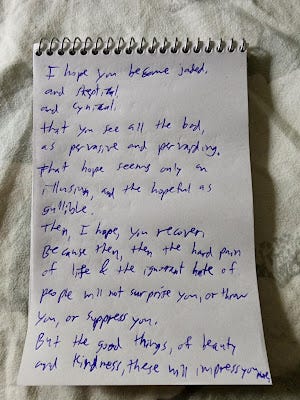 I hope you become jaded.
and skeptical
and cynical.
that you see all the bad,
as pervasive and pervading.
that hope seems only an
illusion, and the hopeful as
gullible.
Then, I hope, you recover.
Because then, then the hard pain
of life & the ignorant hate of
people will not surprise you, or throw
you, or suppress you.
But the good things, of beauty
and kindness, these will impress you more.